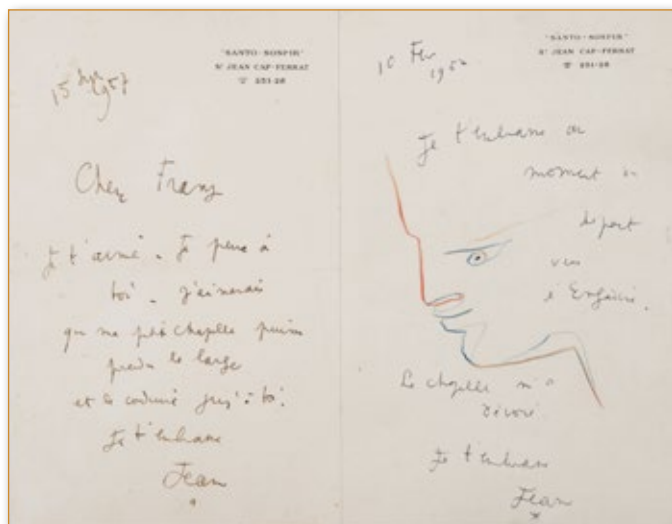 "SANTO-SOSPIR"
St JEAN CAP-FERRAT
☎ 251-28
15
1957
Cher Franz
Je t'aime. Je pense à
toi. J'aimerais
que ma petite chapelle puisse
prendre le large
et te conduire jusqu'à toi.
Je t'embrasse
Jean
*
"SANTO-SOSPIR"
St JEAN CAP-FERRAT
☎ 251-28
10 Fev
Je t'embrasse au
moment du
départ
vers
Jean
La chapelle m'a
dévoré
Je t'embrasse
Jean
*